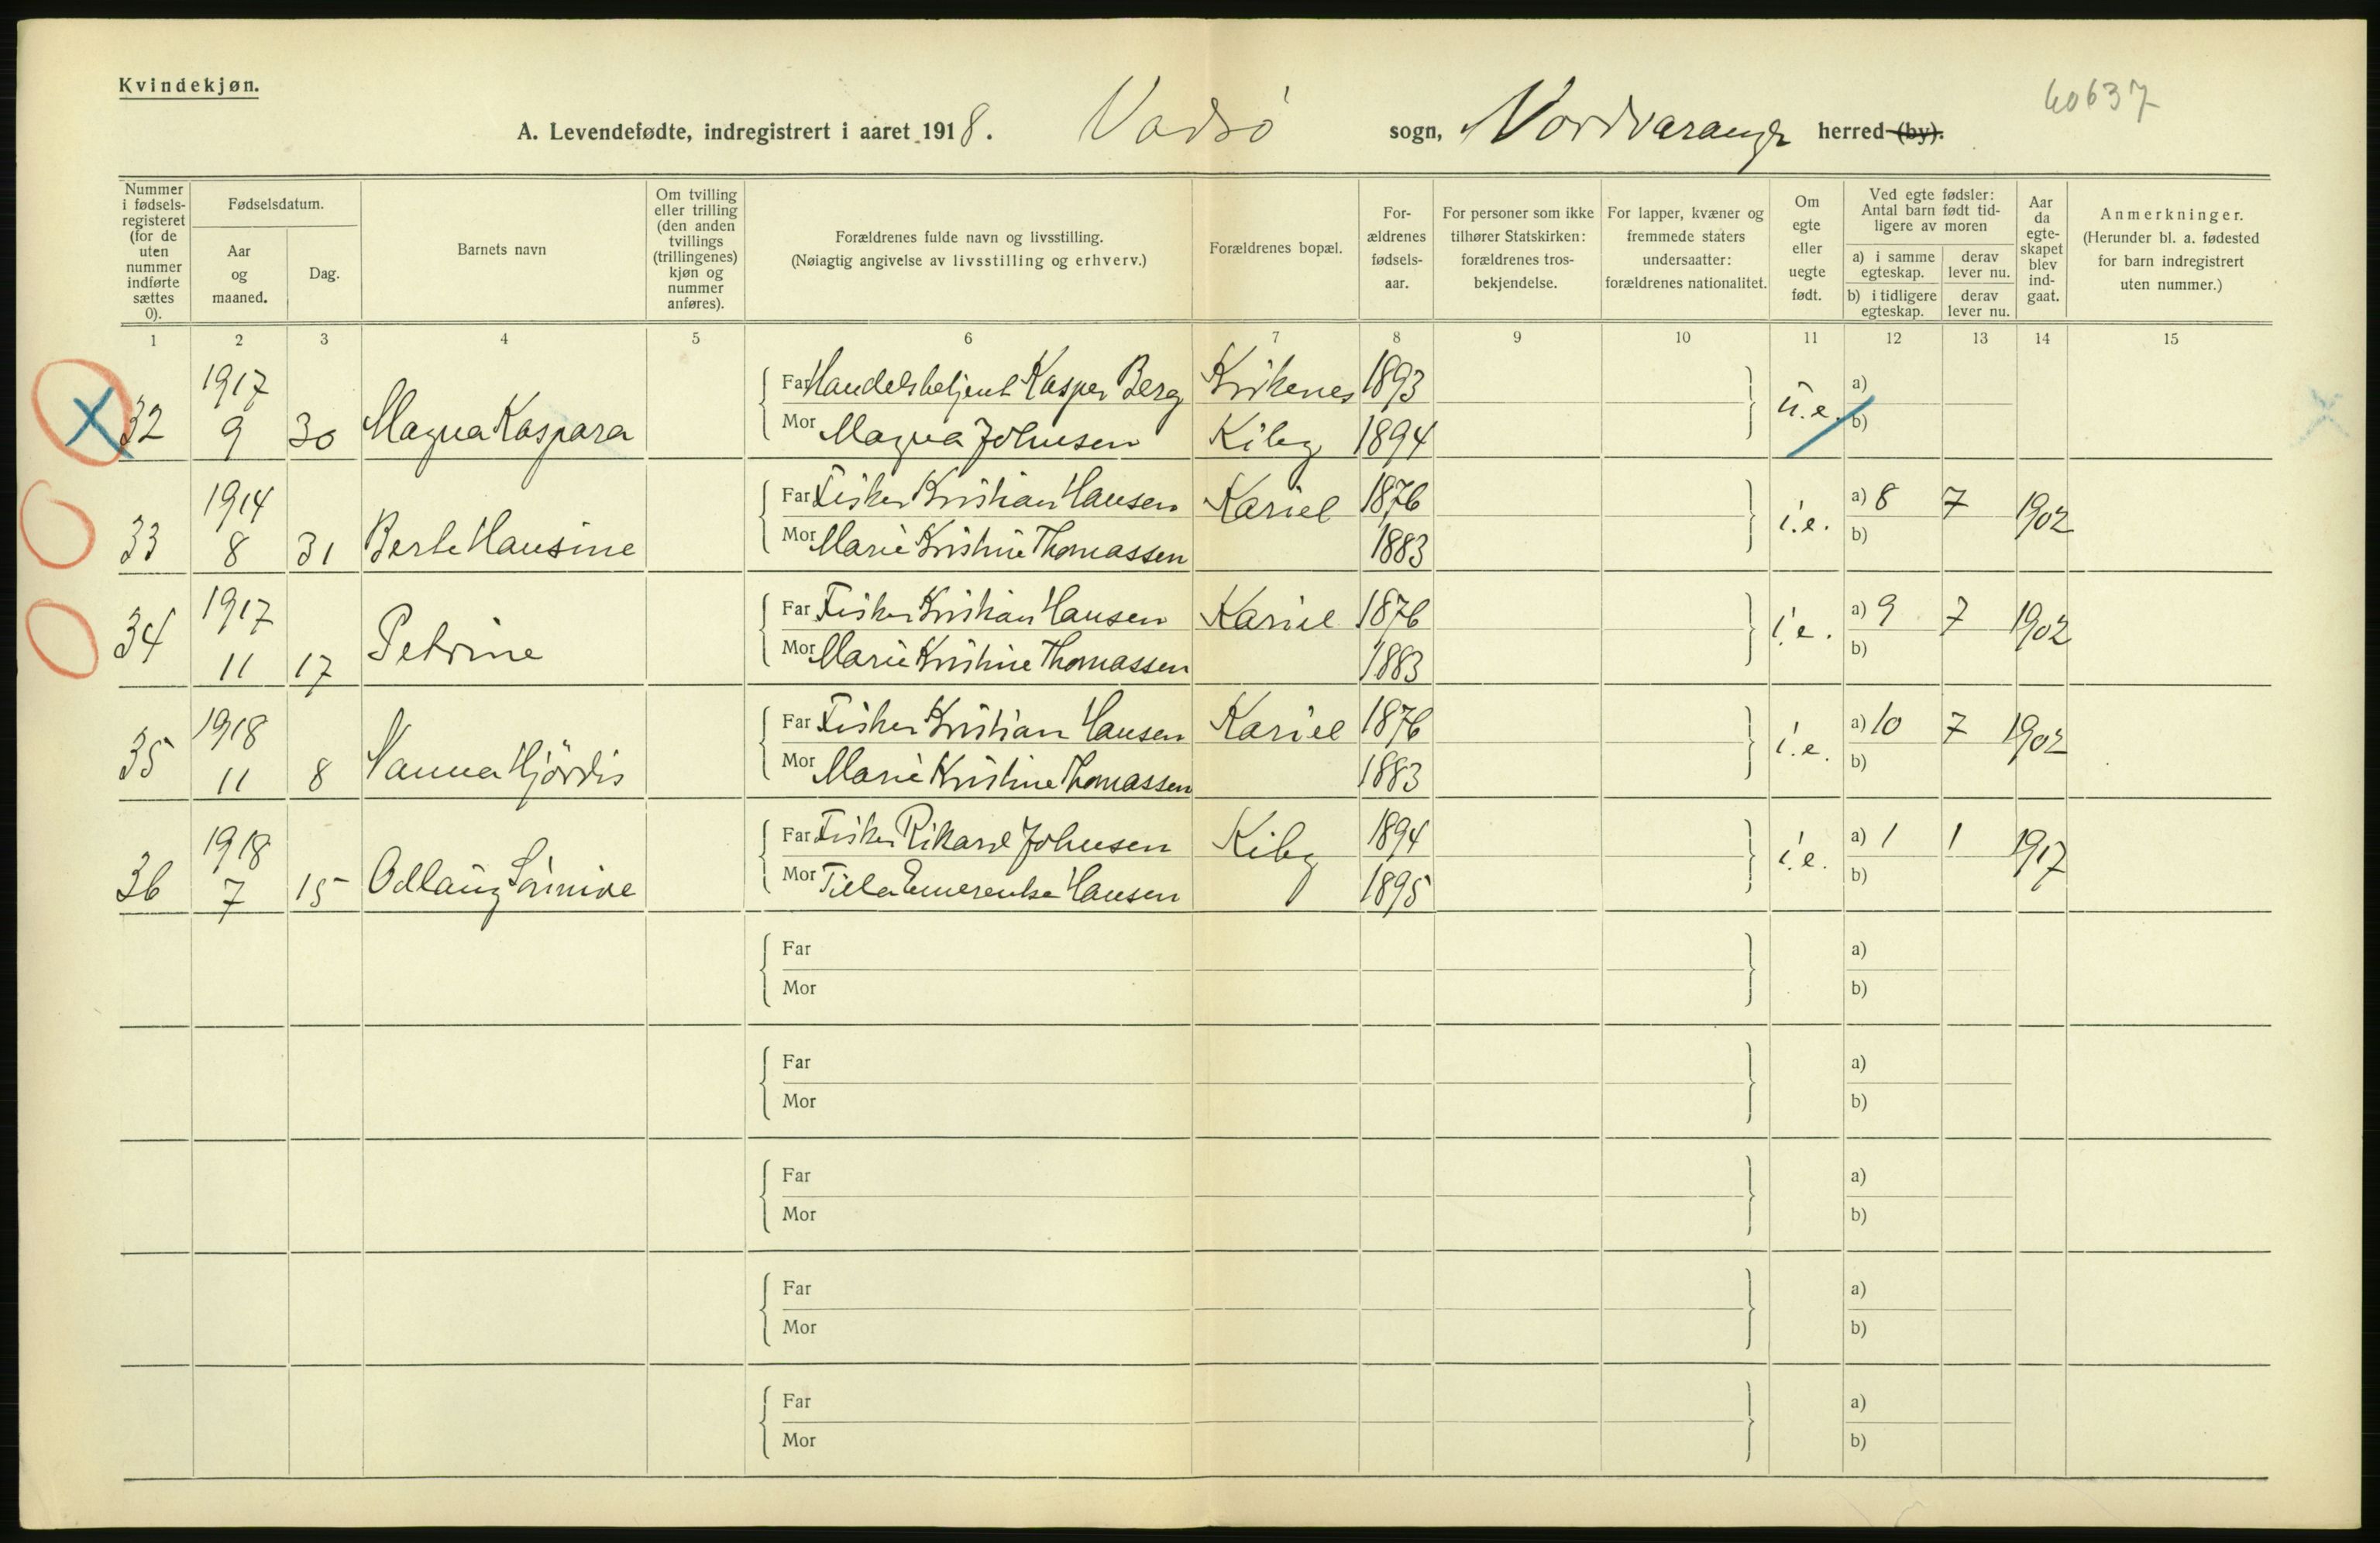 Kvindekjøn.
60637
A. Levendefødte, indregistrert i aaret 1918. Vadsö sogn, Nordvaranger herred (by).
Nummer i fødsels-registeret (for de uten nummer indførte sættes 0).
Fødselsdatum.
Aar og maaned.
Dag.
Barnets navn
Om tvilling eller trilling (den anden tvillings (trillingenes) kjøn og nummer anføres).
Forældrenes fulde navn og livsstilling.
(Nøiagtig angivelse av livsstilling og erhverv.)
Forældrenes bopæl.
For-ældrenes fødsels-aar.
For personer som ikke tilhører Statskirken: forældrenes tros-bekjendelse.
For lapper, kvæner og fremmede staters undersaatter: forældrenes nationalitet.
Om egte eller uegte født.
Ved egte fødsler: Antal barn født tid-ligere av moren
a) i samme egteskap.
derav lever nu.
b) i tidligere egteskap.
derav lever nu.
Aar da egte-skapet blev ind-gaat.
Anmerkninger.
(Herunder bl. a. fødested for barn indregistrert uten nummer.)
1 2 3 4 5 6 7 8 9 10 11 12 13 14 15
1917 Far Handelsbetjent Kasper Berg Kirkenes 1893 a)
32 9 30 Magna Kaspara Mor Magna Johnsen Kiberg 1894 u.e. b)
1914 Far Fisker Kristian Hansen Kariel 1876 a) 8 7 1902
33 8 31 Berte Hansine Mor Marie Kristine Thomassen 1883 i.e. b)
1917 Far Fisker Kristian Hansen Kariel 1876 a) 9 7 1902
34 11 17 Petrine Mor Marie Kristine Thomassen 1883 i.e. b)
1918 Far Fisker Kristian Hansen Kariel 1876 a) 10 7 1902
35 11 8 Nanna Hjördis Mor Marie Kristine Thomassen 1883 i.e. b)
1918 Far Fisker Rikard Johnsen Kiberg 1894 a) 1 1 1917
36 7 15 Odlaug Mor Hansen 1895 i.e. b)
Far a)
Mor b)
Far a)
Mor b)
Far a)
Mor b)
Far a)
Mor b)
Far a)
Mor b)